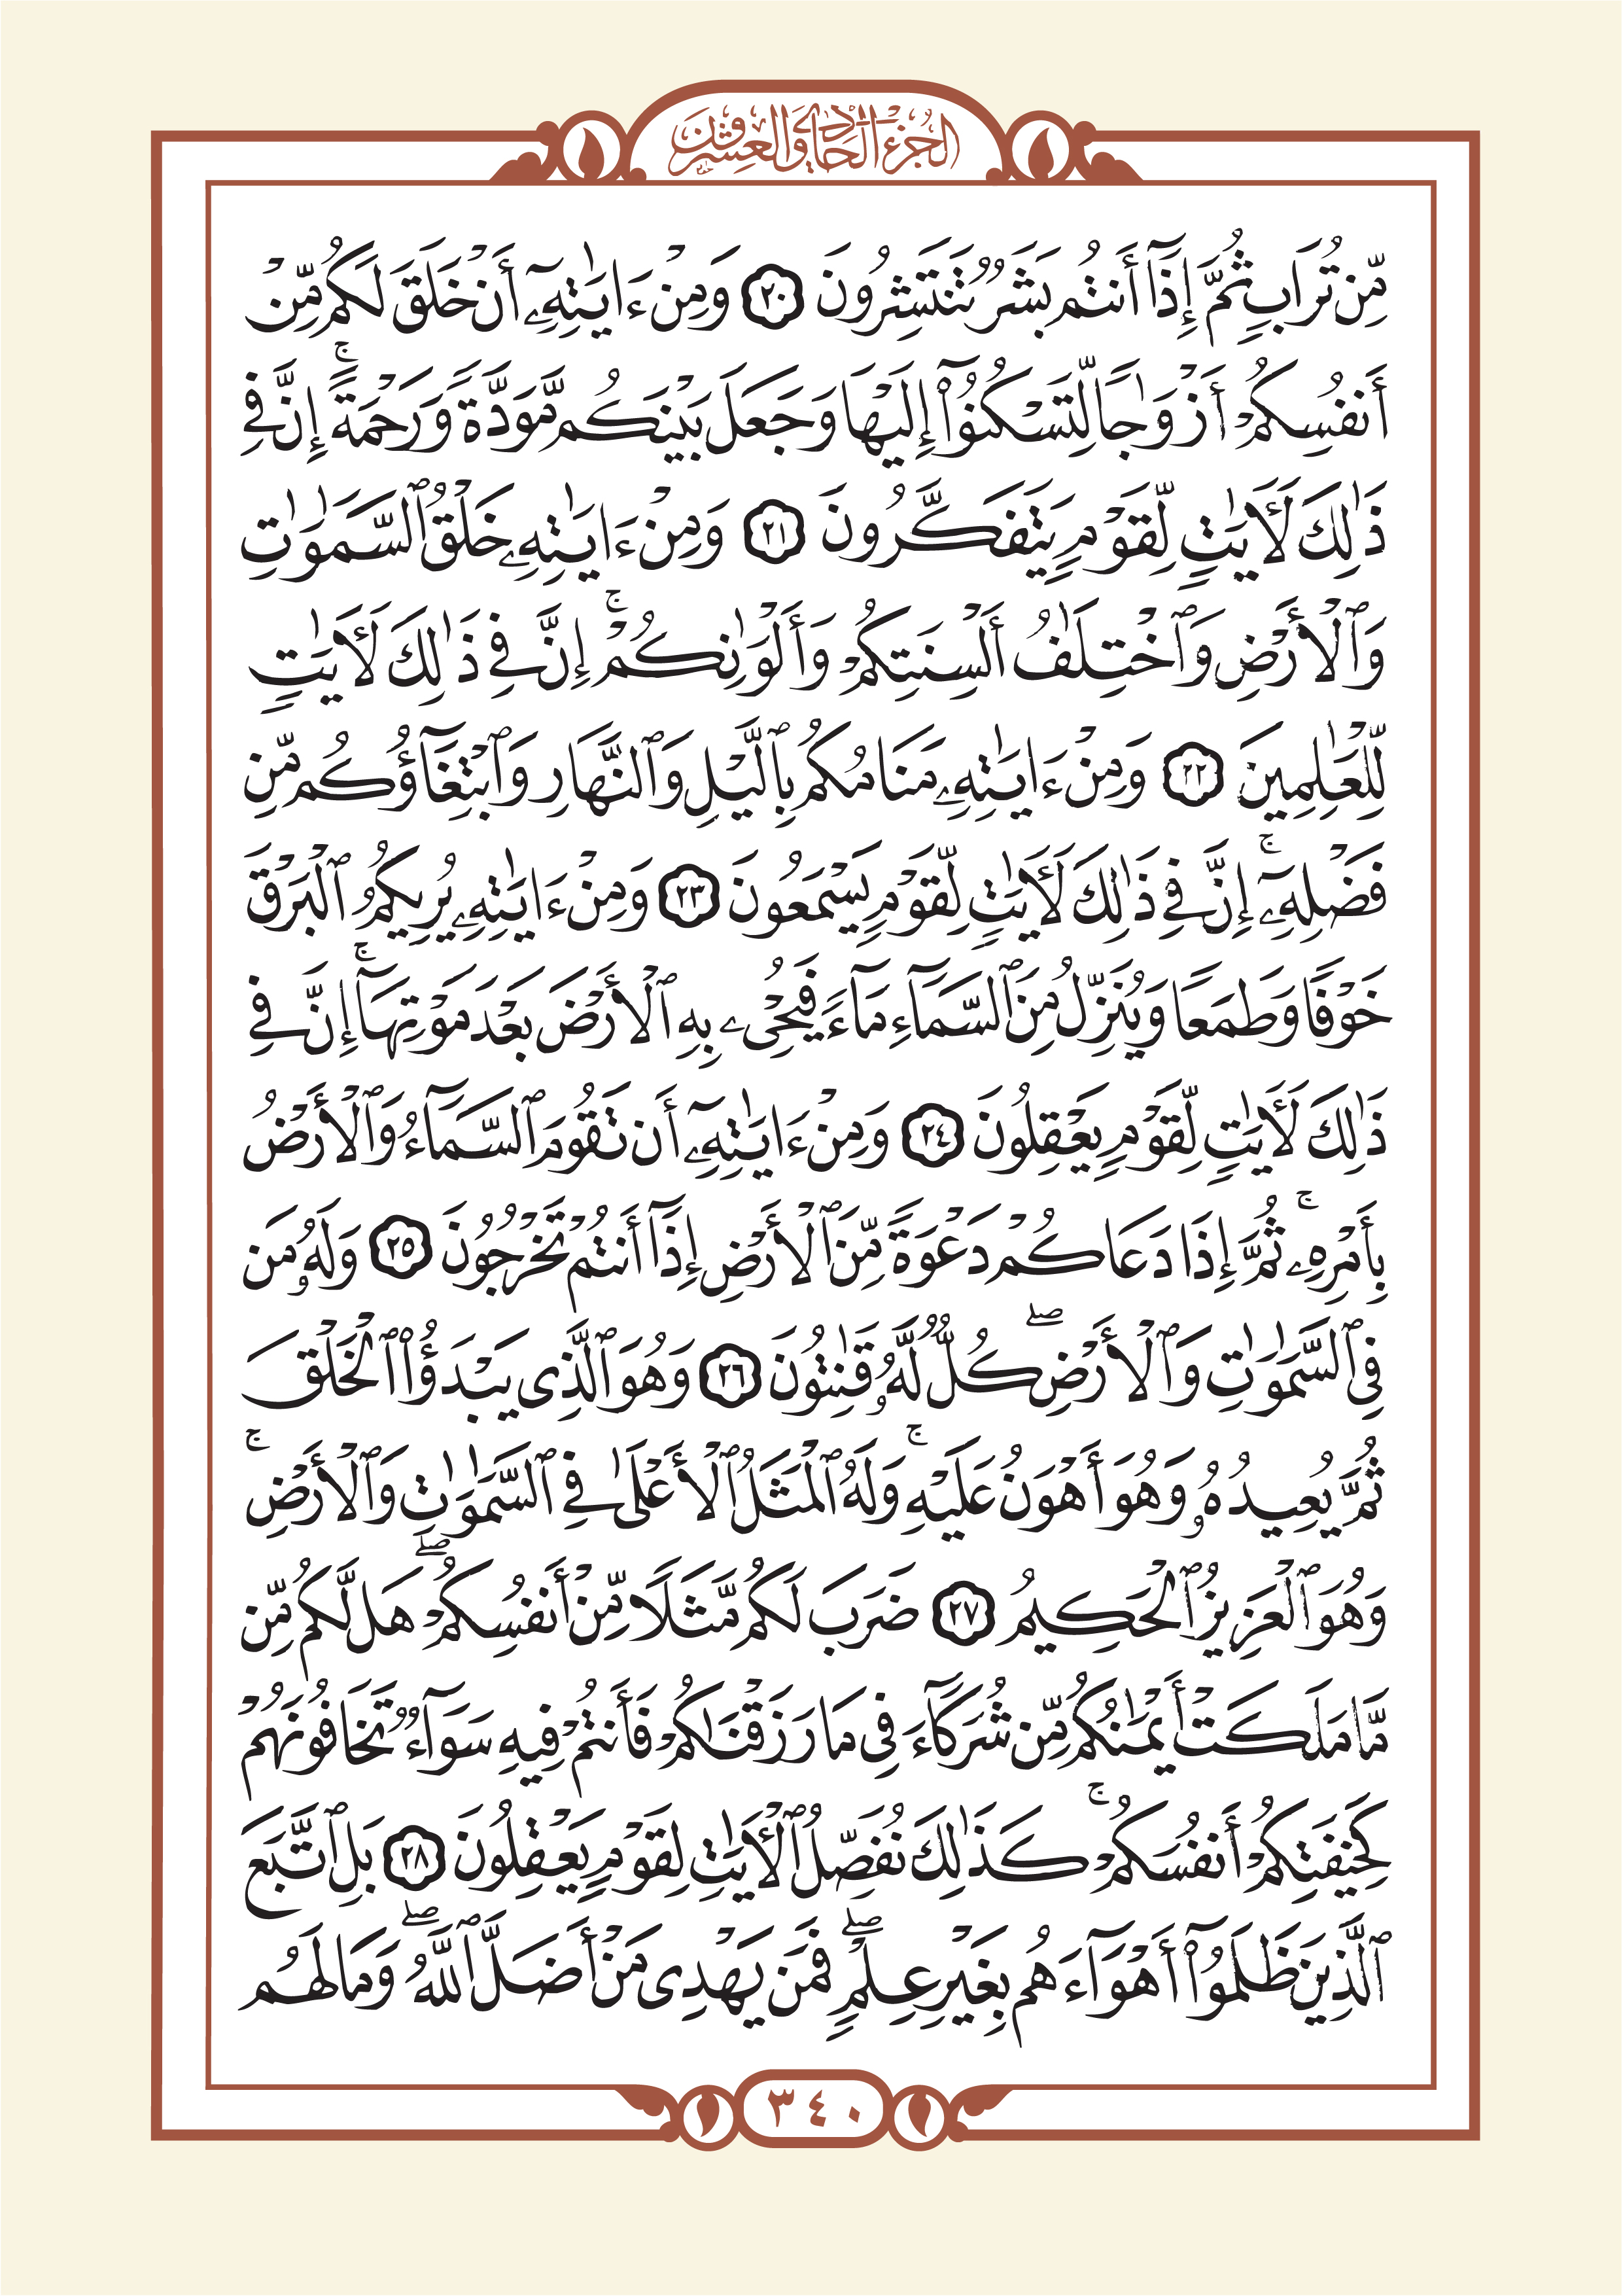 الجزء الحادي والعشرون
مِّن تُرَابٍ ثُمَّ إِذَآ أَنتُم بَشَرٌ تَنتَشِرُونَ ٢٠ وَمِنْ ءَايَٰتِهِۦٓ أَنْ خَلَقَ لَكُم مِّنْ
أَنفُسِكُمْ أَزْوَٰجًا لِّتَسْكُنُوٓا۟ إِلَيْهَا وَجَعَلَ بَيْنَكُم مَّوَدَّةً وَرَحْمَةً ۚ إِنَّ فِى
ذَٰلِكَ لَءَايَٰتٍ لِّقَوْمٍ يَتَفَكَّرُونَ ٢١ وَمِنْ ءَايَٰتِهِۦ خَلْقُ ٱلسَّمَٰوَٰتِ
وَٱلْأَرْضِ وَٱخْتِلَٰفُ أَلْسِنَتِكُمْ وَأَلْوَٰنِكُمْ ۚ إِنَّ فِى ذَٰلِكَ لَءَايَٰتٍ
لِّلْعَٰلِمِينَ ٢٢ وَمِنْ ءَايَٰتِهِۦ مَنَامُكُم بِٱلَّيْلِ وَٱلنَّهَارِ وَٱبْتِغَآؤُكُم مِّن
فَضْلِهِۦٓ ۚ إِنَّ فِى ذَٰلِكَ لَءَايَٰتٍ لِّقَوْمٍ يَسْمَعُونَ ٢٣ وَمِنْ ءَايَٰتِهِۦ يُرِيكُمُ ٱلْبَرْقَ
خَوْفًا وَطَمَعًا وَيُنَزِّلُ مِنَ ٱلسَّمَآءِ مَآءً فَيُحْىِۦ بِهِ ٱلْأَرْضَ بَعْدَ مَوْتِهَآ ۚ إِنَّ فِى
ذَٰلِكَ لَءَايَٰتٍ لِّقَوْمٍ يَعْقِلُونَ ٢٤ وَمِنْ ءَايَٰتِهِۦٓ أَن تَقُومَ ٱلسَّمَآءُ وَٱلْأَرْضُ
بِأَمْرِهِۦ ۚ ثُمَّ إِذَا دَعَاكُمْ دَعْوَةً مِّنَ ٱلْأَرْضِ إِذَآ أَنتُمْ تَخْرُجُونَ ٢٥ وَلَهُۥ مَن
فِى ٱلسَّمَٰوَٰتِ وَٱلْأَرْضِ ۖ كُلٌّ لَّهُۥ قَٰنِتُونَ ٢٦ وَهُوَ ٱلَّذِى يَبْدَؤُا۟ ٱلْخَلْقَ
ثُمَّ يُعِيدُهُۥ وَهُوَ أَهْوَنُ عَلَيْهِ ۚ وَلَهُ ٱلْمَثَلُ ٱلْأَعْلَىٰ فِى ٱلسَّمَٰوَٰتِ وَٱلْأَرْضِ ۚ
وَهُوَ ٱلْعَزِيزُ ٱلْحَكِيمُ ٢٧ ضَرَبَ لَكُم مَّثَلًا مِّنْ أَنفُسِكُمْ ۖ هَل لَّكُم مِّن
مَّا مَلَكَتْ أَيْمَٰنُكُم مِّن شُرَكَآءَ فِى مَا رَزَقْنَٰكُمْ فَأَنتُمْ فِيهِ سَوَآءٌ تَخَافُونَهُمْ
كَخِيفَتِكُمْ أَنفُسَكُمْ ۚ كَذَٰلِكَ نُفَصِّلُ ٱلْءَايَٰتِ لِقَوْمٍ يَعْقِلُونَ ٢٨ بَلِ ٱتَّبَعَ
ٱلَّذِينَ ظَلَمُوٓا۟ أَهْوَآءَهُم بِغَيْرِ عِلْمٍ ۖ فَمَن يَهْدِى مَنْ أَضَلَّ ٱللَّهُ ۖ وَمَا لَهُم
٣٤٠